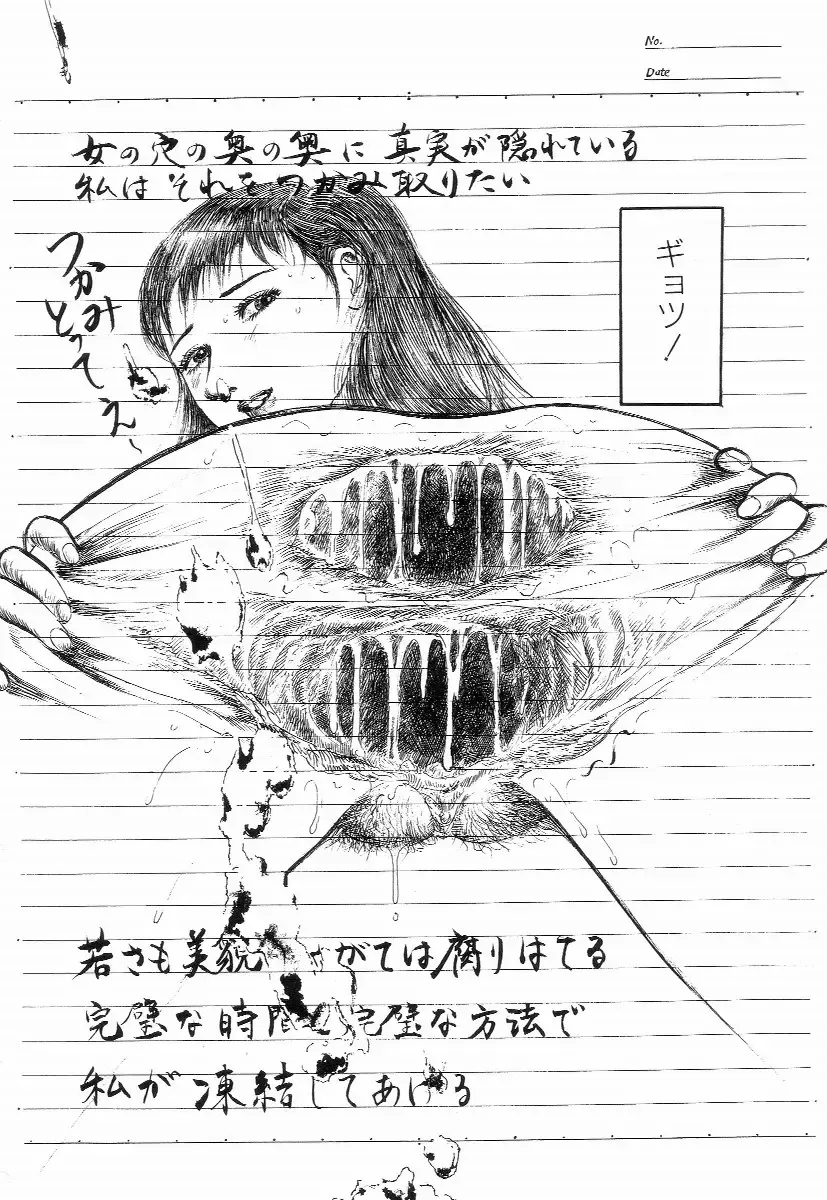 No.
Date
女の穴の奥の奥に 真実が隠れている
私は それをつかみ取りたい
つかみ
とって
え〜
ギョッ!
若さも美貌 がては腐りはてる
完璧な時間 完璧な方法で
私が凍結してあげる